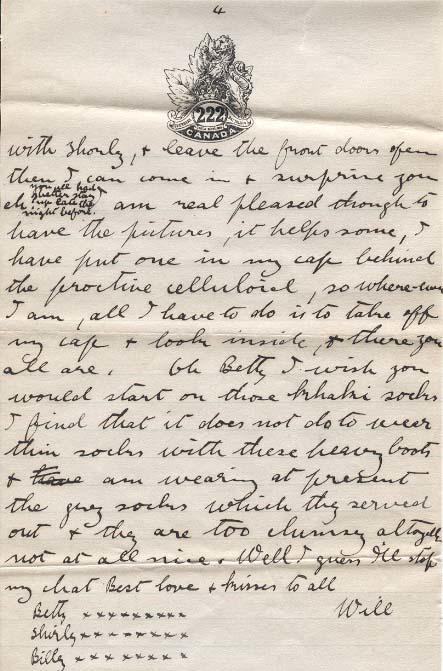 4
222
CANADA
with Shorly, & leave the front doors open
then I can come in & surprise you
eh
you all had
better stay
up late the
night before.
am real pleased though to
have the pictures, it helps some, I
have put one in my cap behind
the proctive celluloid, so where-ever
I am, all I have to do is to take off
my cap & look inside, & there you
all are. Oh Betty I wish you
would start on those khaki socks
I find that it does not do to wear
thin socks with these heavy boots
& have am wearing at present
the grey socks which they served
out & they are too clumsy altogether
not at all nice & Well I guess I'll stop
my chat Best love & kisses to all
Will
Betty x x x x x x x x x
Shirly x x x x x x x x
Billy x x x x x x x x